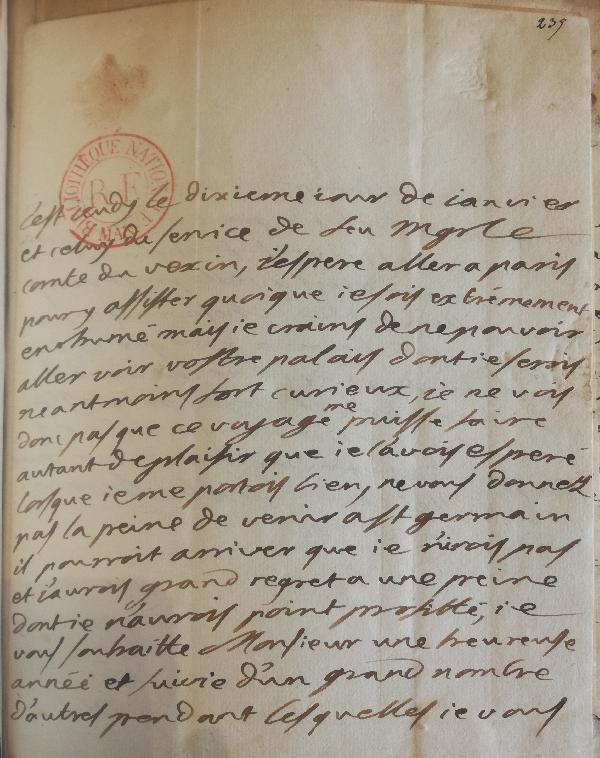 239
BIBLIOTHEQUE NATIONALE
R.F
MAN
c'est jeudy le dixieme iour de ianvier
et celuy du service de feu Mgr le
comte du vexin, i'espere aller a paris
pour y assister quoique ie sois extrémement
enrhumé mais ie crains de ne pouvoir
aller voir vostre palais dont ie serois
neantmoins fort curieux, ie ne vois
donc pas que ce voyage me puisse faire
autant de plaisir que ie l'avois esperé
lorsque ie me portois bien, ne vous donnez
pas la peine de venir a st germain
il pourroit arriver que ie n'irois pas
et i'aurois grand regret a une peine
dont ie n'aurois point profitté, ie
vous souhaitte Monsieur une heureuse
année et suivie d'un grand nombre
d'autres pendant lesquelles ie vous